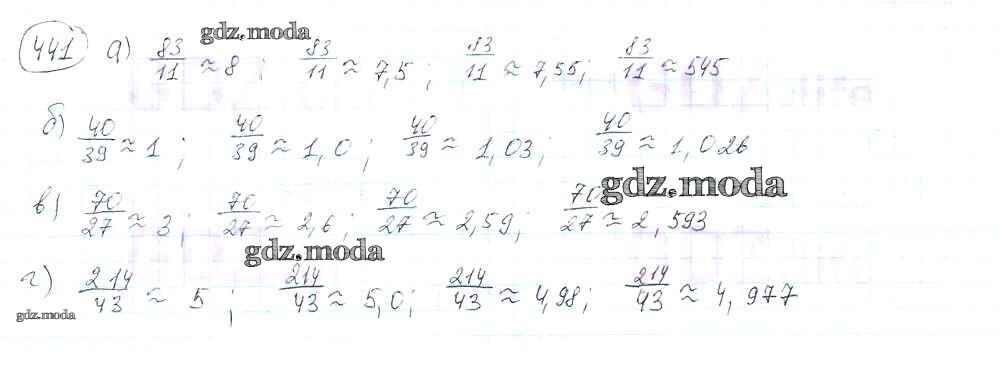 gdz.moda
441 а) 83/11 ≈ 8 ; 83/11 ≈ 7,5 ; 83/11 ≈ 7,55; 83/11 ≈ 545
б) 40/39 ≈ 1 ; 40/39 ≈ 1,0 ; 40/39 ≈ 1,03; 40/39 ≈ 1,026
gdz.moda
в) 70/27 ≈ 3 ; 70/27 ≈ 2,6 ; 70/27 ≈ 2,59; 70/27 ≈ 2,593
gdz.moda
г) 214/43 ≈ 5 ; 214/43 ≈ 5,0; 214/43 ≈ 4,98; 214/43 ≈ 4,977
gdz.moda